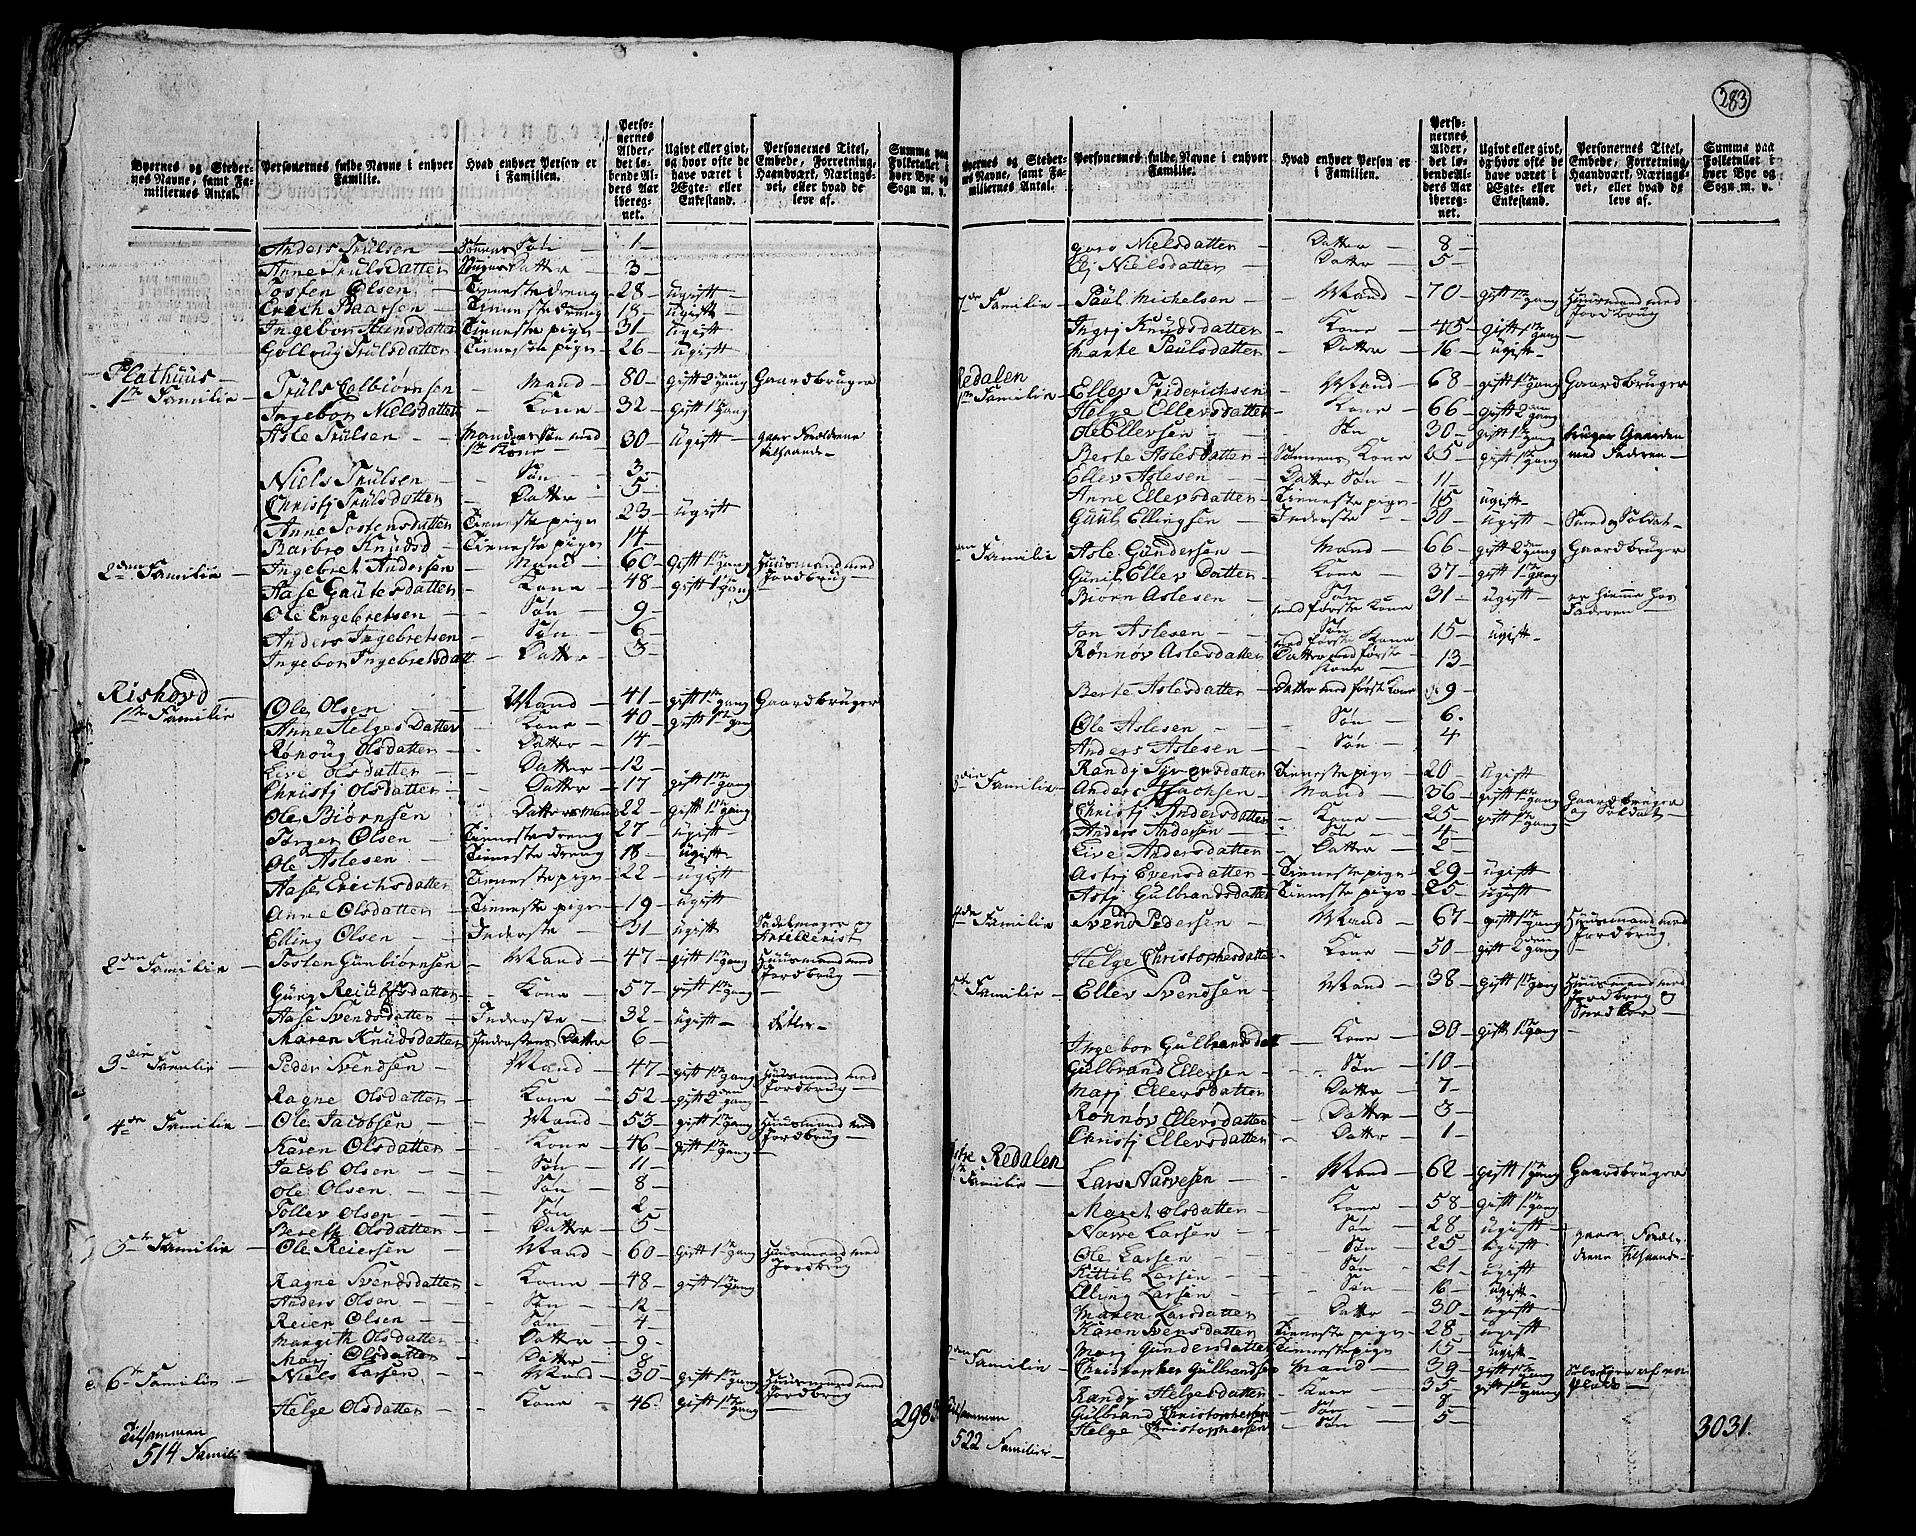 283
Byernes og Stedernes Navne, samt Familiernes Antal.
Personernes fulde Navne i enhver Familie.
Hvad enhver Person er i Familien.
Personernes Alder, det løbende Alders Aar iberegnet.
Ugivt eller givt, og hvor ofte de have været i Egte- eller Enkestand.
Personernes Titel, Embede, Forretning, Haandværk, Næringsvei, eller hvad de leve af.
Summa paa Folketallet i hver Bye og Sogn m. v.
Anders Trulsen — Sönnens Sön — 1 —
Anne Trulsdatter Datter — 3 —
Tosten Olsen — Tieneste dreng — 28 — ugift —
Erich Baarsen — Tieneste dreng — 18 — ugift
Ingebor Hansdatter Tieneste pige — 31 — ugift
Golloug Trulsdatter Tieneste pige — 26 — ugift
Plathuus —
1ste Familie — Truls Colbiörnsen — Mand — 80 — gift 2den gang Gaardbruger
Ingebor Nielsdatter — Kone — 32 — gift 1ste gang
Asle Trulsen — Mandens Sön med 1ste Kone — 30 — ugift — gaar Forældrene tilhaande —
Niels Trulsen — Sön — 3 —
Christj Trulsdatter — Datter — 5 —
Anne Tostensdatter Tieneste pige — 23 — ugift
Barbro Knudsd — Tieneste pige — 14 —
2den Familie — Ingebret Andersen — Mand — 60 — gift 1ste gang Huusmand med Jordbrug —
Aase Gautesdatter — Kone — 48 — gift 1ste gang
Ole Engebretsen — Sön — 9 —
Anders Ingebretsen — Sön — 6 —
Ingebor Ingebretsdatt — Datter — 3 —
Rishovd —
1ste Familie Ole Olsen — Mand — 41 — gift 1ste gang Gaardbruger
Anne Helges Datter — Kone — 40 — gift 1ste gang
Rönoug Olsdatter — Datter — 14 —
Live Olsdatter — Datter — 12 —
Christj Olsdatter — Datter — 17 gift 1ste gang
Ole Biörnsen — Datters Mand 22 — gift 1ste gang
Torger Olsen — Tieneste dreng — 27 — ugift
Ole Aslesen — Tieneste dreng 18 — ugift
Aase Erichsdatter Tieneste pige — 22 — ugift
Anne Olsdatter — Tieneste pige — 19 — ugift
Elling Olsen — Inderste — 31 — ugift Sadelmager og Artillerist
2den Familie — Tosten Gunbiörnsen — Mand — 47 — gift 1ste gang Huusmand med Jordbrug —
— Kone — 57 — gift 1ste gang —
Aase Svendsdatter — Inderste — 32 — ugift —
Maren Knudsdatter Inderstens Datter 6 —
3die Familie — Peder Svendsen — Mand — 47 — gift 1ste gang Huusmand med Jordbrug —
Ragne Olsdatter — Kone — 52 — gift 2den gang
4de Familie — Ole Jacobsen — Mand — 53 — gift 1ste gang Huusmand med Jordbrug —
Karen Olsdatter — Kone — 46 — gift 1ste gang —
Jacob Olsen — Sön — 11 —
Ole Olsen — Sön — 8 —
Tollev Olsen — Sön — 2 —
Olsdatter — Datter — 5 —
5te Familie — Ole Reiersen — Mand — 60 — gift 1ste gang Huusmand med Jordbrug
Ragne Svendsdatter — Kone — 48 — gift 1ste gang
Anders Olsen — Sön — 12 —
Reier Olsen — Sön — 4 —
Margith Olsdatter — Datter — 9 —
Marj Olsdatter — Datter — 8
6te Familie — Niels Larsen — Mand — 30 — gift 1ste gang Huusmand med Jordbrug
Helge Olsdatter — Kone — 46 — gift 1ste gang —
Tilsammen
514 Famili
298
Byernes og Stedernes Navne, samt Familiernes Antal.
Personernes fulde Navne i enhver Familie.
Hvad enhver Person er i Familien.
Personernes Alder, det løbende Alders Aar iberegnet.
Ugivt eller givt, og hvor ofte de have været i Egte- eller Enkestand.
Personernes Titel, Embede, Forretning, Haandværk, Næringsvei, eller hvad de leve af.
Summa paa Folketallet i hver Bye og Sogn m. v.
Nielsdatter — Datter — 8 —
Nielsdatter — Datter — 5 —
7de Familie — Paul Michelsen — Mand — 70 — gift 1ste gang Huusmand med Jordbrug
Ingrj Knudsdatter — Kone — 45 — gift 1ste gang —
Marte Paulsdatter — Datter — 16 — ugift —
Redalen
1ste Familie — Ellev Friderichsen — Mand — 68 — gift 1ste gang Gaardbruger
Helge Ellevsdatter — Kone — 66 — gift 2den gang
Ole Ellevsen — Sön — 30 — gift 1ste gang bruger Gaarden
Berte Aslesdatter — Sönnens Kone 25 — gift 1ste gang med Faderen —
Ellev Aslesen — Datter Sön — 11 —
Anne Ellevsdatter — Tieneste pige — 15 ugift —
Guul Ellingsen — Inderste — 30 — ugift — Smed og Soldat —
Familie — Asle Gundersen — Mand — 66 — gift 2den gang Gaardbruger
Gunil Ellev Datter — Kone — 37 — gift 1ste gang
Biörn Aslesen — Sön med förste Kone — 31 — ugift — er hiemme hos Faderen —
Jon Aslesen — Sön med förste Kone — 15 — ugift —
Rönnöv Aslesdatter Datter med förste Kone — 13 —
Berte Aslesdatter — Datter med förste Kone 9 —
Ole Aslesen — Sön — 6.
Anders Aslesen — Sön — 4
Randj Syversdatter Tieneste pige — 20 — ugift
3die Familie — Anders Isachsen — Mand — 36 — gift 1ste gang Gaardbruger
Christj Andersdatter — Kone — 25 — gift 1ste gang og Soldat —
Anders Andersen — Sön — 4 —
Live Andersdatter — Datter — 2 —
Astrj Evensdatter — Tieneste pige — 29 — ugift
Astj Gulbrandsdatter Tieneste pige — 25 — ugift
4de Familie — Svend Pedersen — Mand — 67 — gift 1ste gang Huusmand med Jordbrug —
Helge Christophersdatter — Kone — 50 — gift 2den gang
5te Familie — Ellev Svendsen — Mand — 38 — gift 1ste gang Huusmand med Jordbrug og —
Ingebor Gulbrandsdatt — Kone — 30 — gift 1ste gang —
Gulbrand Ellevsen — Sön — 10 —
Marj Ellevsdatter — Datter — 7 —
Rönnöv Ellevsdatter — Datter — 3 —
Christj Ellevsdatter — Datter — 1 —
Redalen
Familie — Lars Narvesen — Mand — 62 — gift 1ste gang Gaardbruger
Maret Olsdatter — Kone — 58 — gift 1ste gang
Narve Larsen — Sön — 28 — ugift —
Ole Larsen — Sön — 25 — ugift gaaer Forældrene tilhaande —
Kittil Larsen — Sön — 21 — ugift
Elling Larsen — Sön — 16 — ugift —
Maren Larsdatter — Datter — 30 — ugift
Karen Svensdatter Tieneste pige — 28 — ugift
Marj Gundersdatter Tieneste pige 15 — ugift —
2den Familie — Christopher Gulbrandsen Mand — 39 — gift 1ste gang
Randj Helgesdatter — Kone — 35 — gift 1ste gang
Gulbrand Christophersen — Sön — 8
Helge Christophersen — Sön — 5 —
Tilsammen
522 Familier —
3031.